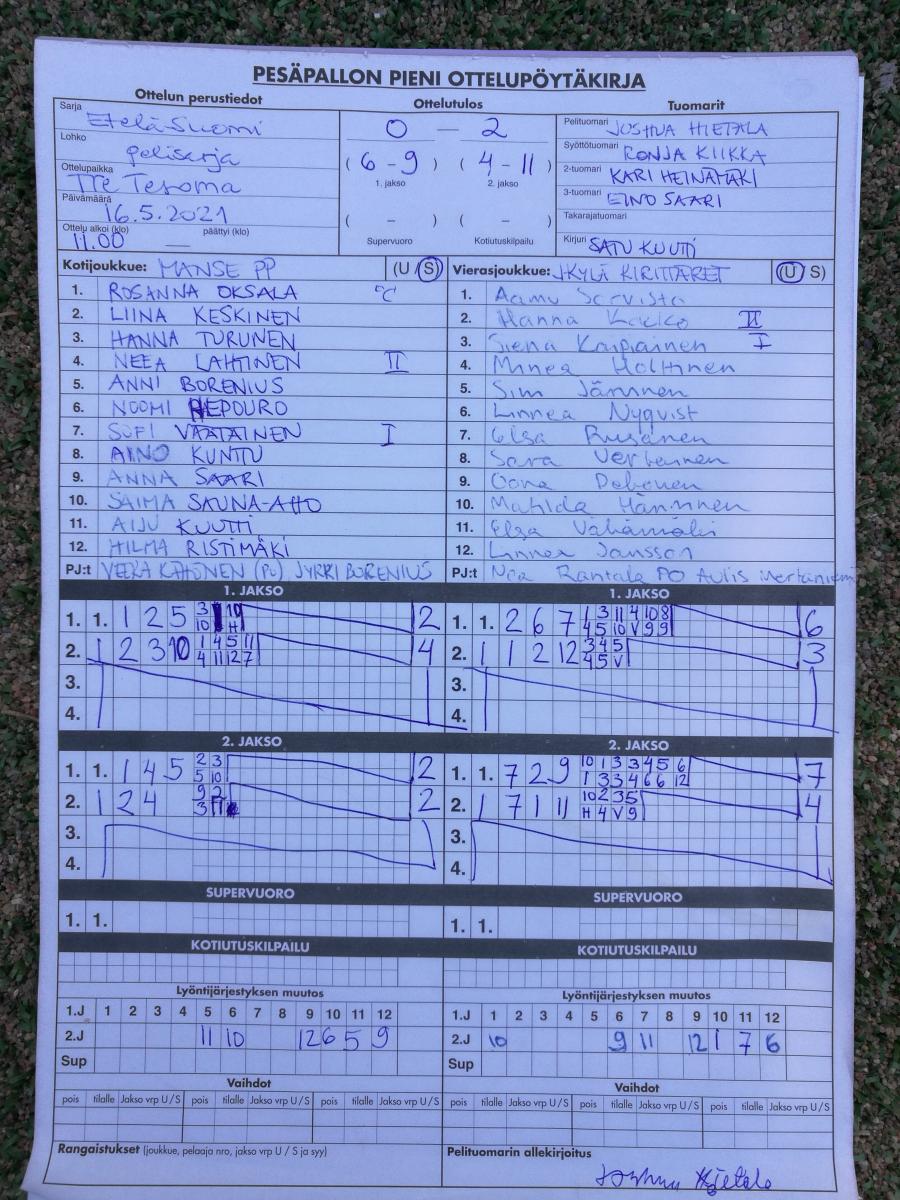 PESÄPALLON PIENI OTTELUPÖYTÄKIRJA
Ottelun perustiedot Ottelutulos Tuomarit
Sarja Etelä-Suomi
Lohko pelisarja
Ottelupaikka TTe Tesoma
Päivämäärä 16.5.2021
Ottelu alkoi (klo) 11.00 — päättyi (klo)
0 — 2
(6-9) (4-11)
1. jakso 2. jakso
( - ) ( - )
Supervuoro Kotiutuskilpailu
Pelituomari JOSHUA HIETALA
Syöttötuomari RONJA KIIKKA
2-tuomari KARI HEINÄMÄKI
3-tuomari EINO SAARI
Takarajatuomari
Kirjuri SATU KUUTTI
Kotijoukkue: MANSE PP (U S)
1. ROSANNA OKSALA C
2. LIINA KESKINEN
3. HANNA TURUNEN
4. NEEA LAHTINEN II
5. ANNI BORENIUS
6. NOOMI REPOURO
7. SOFI VÄÄTÄINEN I
8. AINO KUNTU
9. ANNA SAARI
10. SAIMA SAUNA-AHO
11. AIJU KUUTTI
12. HILMA RISTIMÄKI
PJ:t VEERA KAHONEN (PO) JYRKI BORENIUS
Vierasjoukkue: JKYLÄ KIRITTÄRET (U S)
1. Aamu Sarvisto
2. Hanna II
3. Siena Karpiainen I
4. Minea Holttinen
5. Sini Järvinen
6. Linnea Nyqvist
7. Elsa Rusanen
8. Sara Vertainen
9. Oona
10. Matilda Hänninen
11. Elsa Vähämäki
12. Linnea Jansson
PJ:t Nea Rantala PO Aulis
1. JAKSO
1. 1. 1 2 5 3 10 10 H 2
2. 1 2 3 10 1 4 5 11 4 11 12 7 4
3.
4.
1. JAKSO
1. 1. 2 6 7 1 3 11 4 10 8 4 5 10 V 9 9 6
2. 1 1 2 12 3 4 5 4 5 V 3
3.
4.
2. JAKSO
1. 1. 1 4 5 2 3 5 10 2
2. 1 2 4 9 2 3 11 2
3.
4.
2. JAKSO
1. 1. 7 2 9 10 1 3 3 4 5 6 1 3 3 4 6 6 12 7
2. 1 7 1 11 10 2 3 5 H 4 V 9 4
3.
4.
SUPERVUORO
1. 1.
SUPERVUORO
1. 1.
KOTIUTUSKILPAILU
KOTIUTUSKILPAILU
Lyöntijärjestyksen muutos
1.J 1 2 3 4 5 6 7 8 9 10 11 12
2.J 11 10 12 6 5 9
Sup
Lyöntijärjestyksen muutos
1.J 1 2 3 4 5 6 7 8 9 10 11 12
2.J 10 9 11 12 1 7 6
Sup
Vaihdot
pois tilalle Jakso vrp U/S pois tilalle Jakso vrp U/S pois tilalle Jakso vrp U/S
Vaihdot
pois tilalle Jakso vrp U/S pois tilalle Jakso vrp U/S pois tilalle Jakso vrp U/S
Rangaistukset (joukkue, pelaaja nro, jakso vrp U / S ja syy)
Pelituomarin allekirjoitus
Joshua Hietala